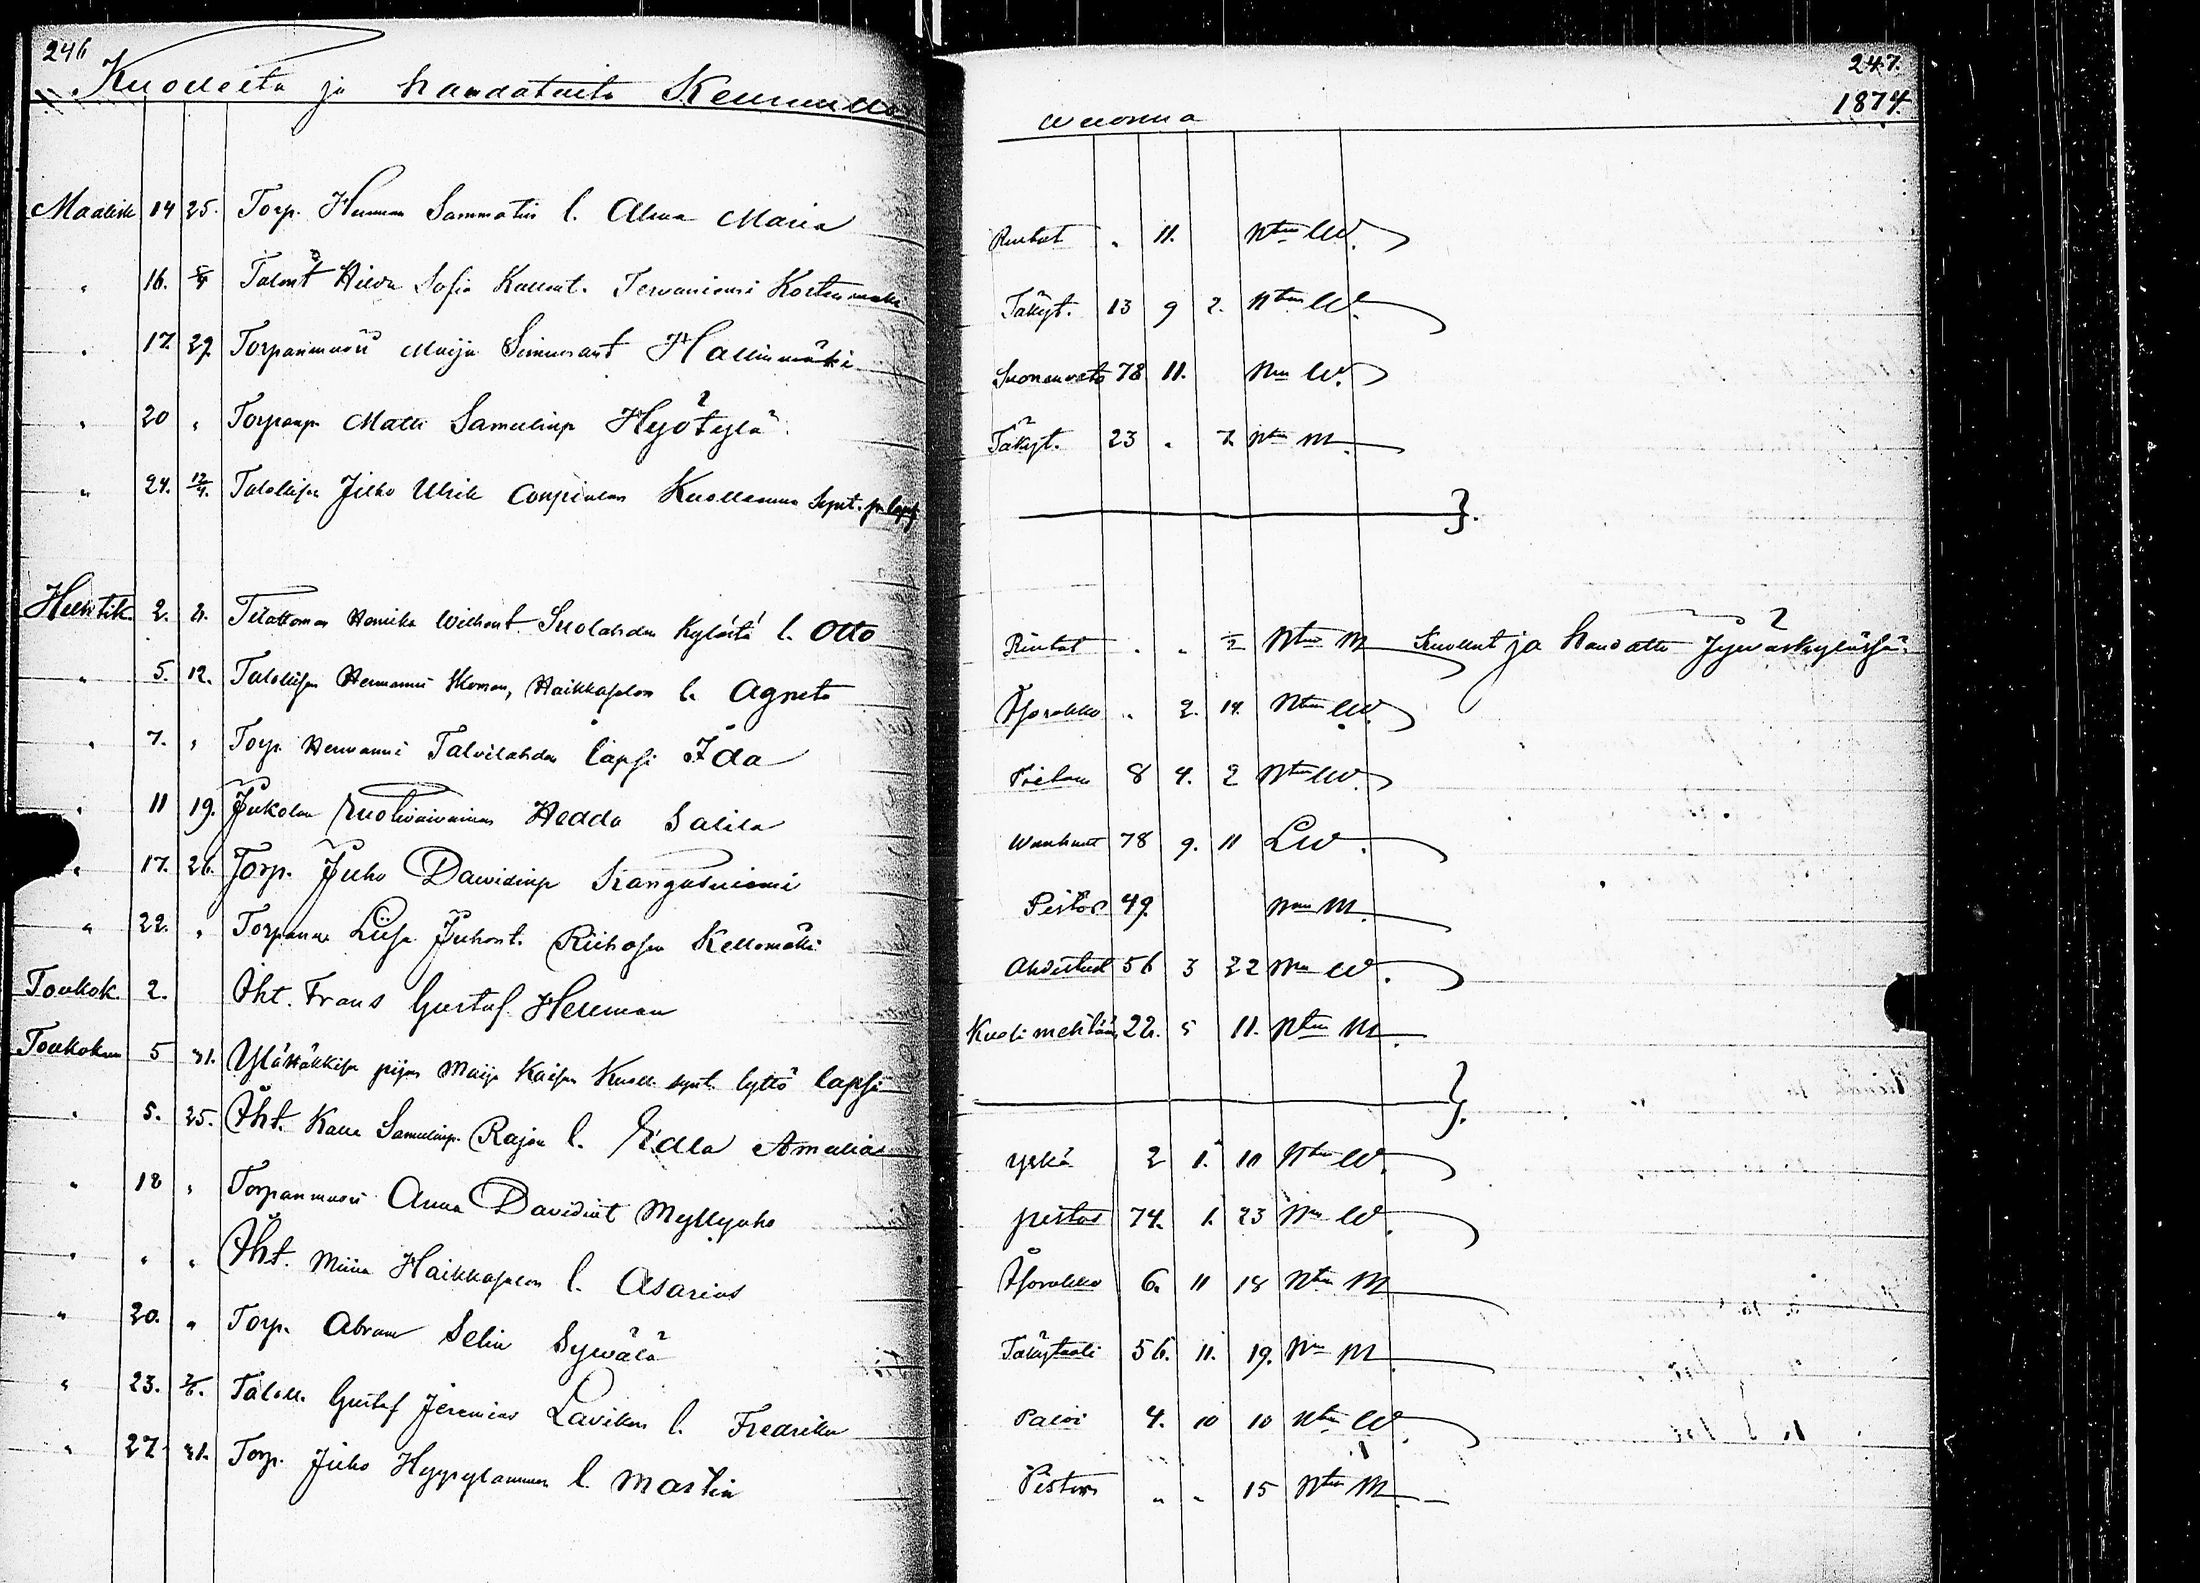 246
Kuolleita ja haudatuita Keuruulla
Maalisk 14 25. Torp. Herman Sammatin l. Alma Maria
" 16. 5/4 Talont Hilda Sofia Kallent. Tervaniemi
" 17. 29. Torpanmuori Maija Simunant Hallinmäki
" 20 " Torpanp. Matti Samulinp Hyötylä
" 24. 12/4. Talollisen Juho Ulrik Kuollaana synt. p. laps
Huhtik. 2. 6. Henrika Wilhont. Suolahden kylästä l. Otto
" 5. 12. Talollisen Hermanni Haikkasalon l. Agneta
" 7. " Torp. Hermanni Talvilahden lapsi Ida
" 11 19. Jukolan ruotivaivainen Hedda Salila
" 17. 26. Torp. Juho Davidinp Kangasniemi
" 22. " Torpanm Liisa Juhont. Riihosen Kellomäki
Toukok. 2. Iht. Frans Gustaf Herman
Toukokuu 5 31. pijan Maija Kaisan Kuoll. synt. tyttö lapsi
" 5. 25. Iht. Kalle Samulinp. Rajan l. Edla Amalia
" 18 " Torpanmuori Anna Davidint Myllyaho
" " " Iht. Miina Haikkasalon l. Asarias
" 20. " Torp. Abram Selin Sywälä
" 23. 7/6. Taloll. Gustaf Jeremias Lavikan l. Fredrika
" 27. 31. Torp. Juho l. Martin
247.
wuonna 1874.
Rintat. " 11. Ntm W.
Täkyt. 13 9 2. Ntm W.
Suonenveto 78 11. Nm W.
Täkyt. 23 " 7 Ntm M.
}.
Rintat " " 2 Ntm M Kuollut ja haudattu Jyväskylässä.
" 2. 14. Ntm W.
8 4. 2 Ntm W.
Wanhuus 78 9. 11 LW.
Pistos 49. Nm M.
Ahdistus 56 3 22 Nm W.
Kuoli metsään 22. 5 11. Ntm M.
}.
yskä 2 1. 10 Ntm W.
pistos 74. 1. 23 Nm W.
6. 11 18 Ntm M
Täkytauti 56. 11. 19. Nm M
Paloi 4. 10 10 Ntm W.
Pistos " " 15 Ntm M.